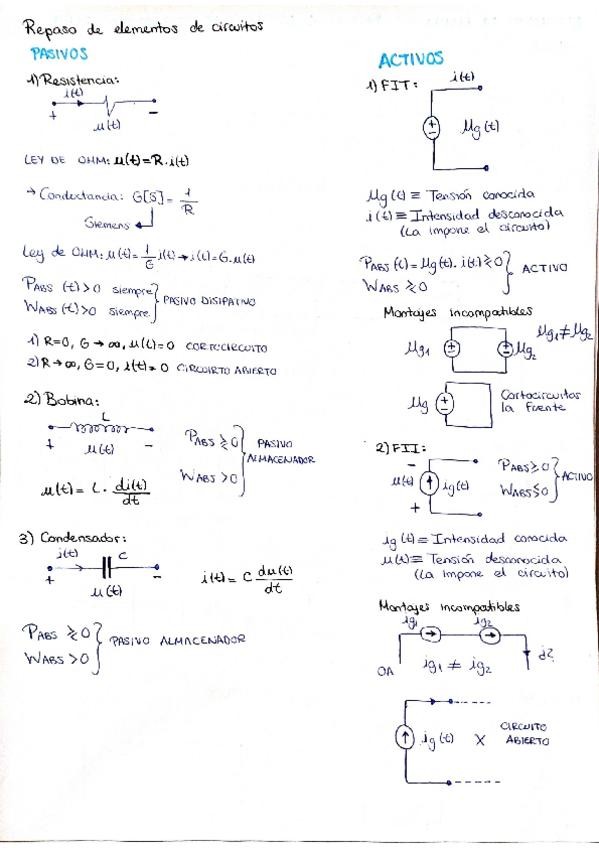 Repaso de elementos de circuitos
PASIVOS
1) Resistencia:
i(t)
+ u(t) -
LEY DE OHM: u(t)=R.i(t)
→ Conductancia: G[S] = 1/R
Siemens
Ley de OHM: u(t)=1/G i(t)→i(t)=G.u(t)
PABS (t)>0 siempre
WABS (t)>0 siempre
PASIVO DISIPATIVO
1) R=0, G→∞, u(t)=0 CORTOCIRCUITO
2) R→∞, G=0, i(t)=0 CIRCUITO ABIERTO
2) Bobina:
L
+ u(t) -
PABS ≷ 0
WABS >0
PASIVO
ALMACENADOR
u(t) = L . di(t)/dt
3) Condensador:
i(t) C
+ u(t) -
i(t) = C du(t)/dt
PABS ≷ 0
WABS >0
PASIVO ALMACENADOR
ACTIVOS
1) FIT:
i(t)
+
-
Ug(t)
Ug(t) ≡ Tensión conocida
i(t) ≡ Intensidad desconocida
(La impone el circuito)
PABS(t)=Ug(t).i(t)≷0
WABS ≷0
ACTIVO
Montajes incompatibles
Ug1 Ug2 Ug1≠Ug2
Ug
Cortocircuitas
la fuente
2) FII:
-
u(t) ig(t)
+
PABS≷0
WABS≶0
ACTIVO
ig(t) ≡ Intensidad conocida
u(t) ≡ Tensión desconocida
(La impone el circuito)
Montajes incompatibles
ig1 ig2
0A ig1 ≠ ig2 ¿?
ig(t) X
CIRCUITO
ABIERTO